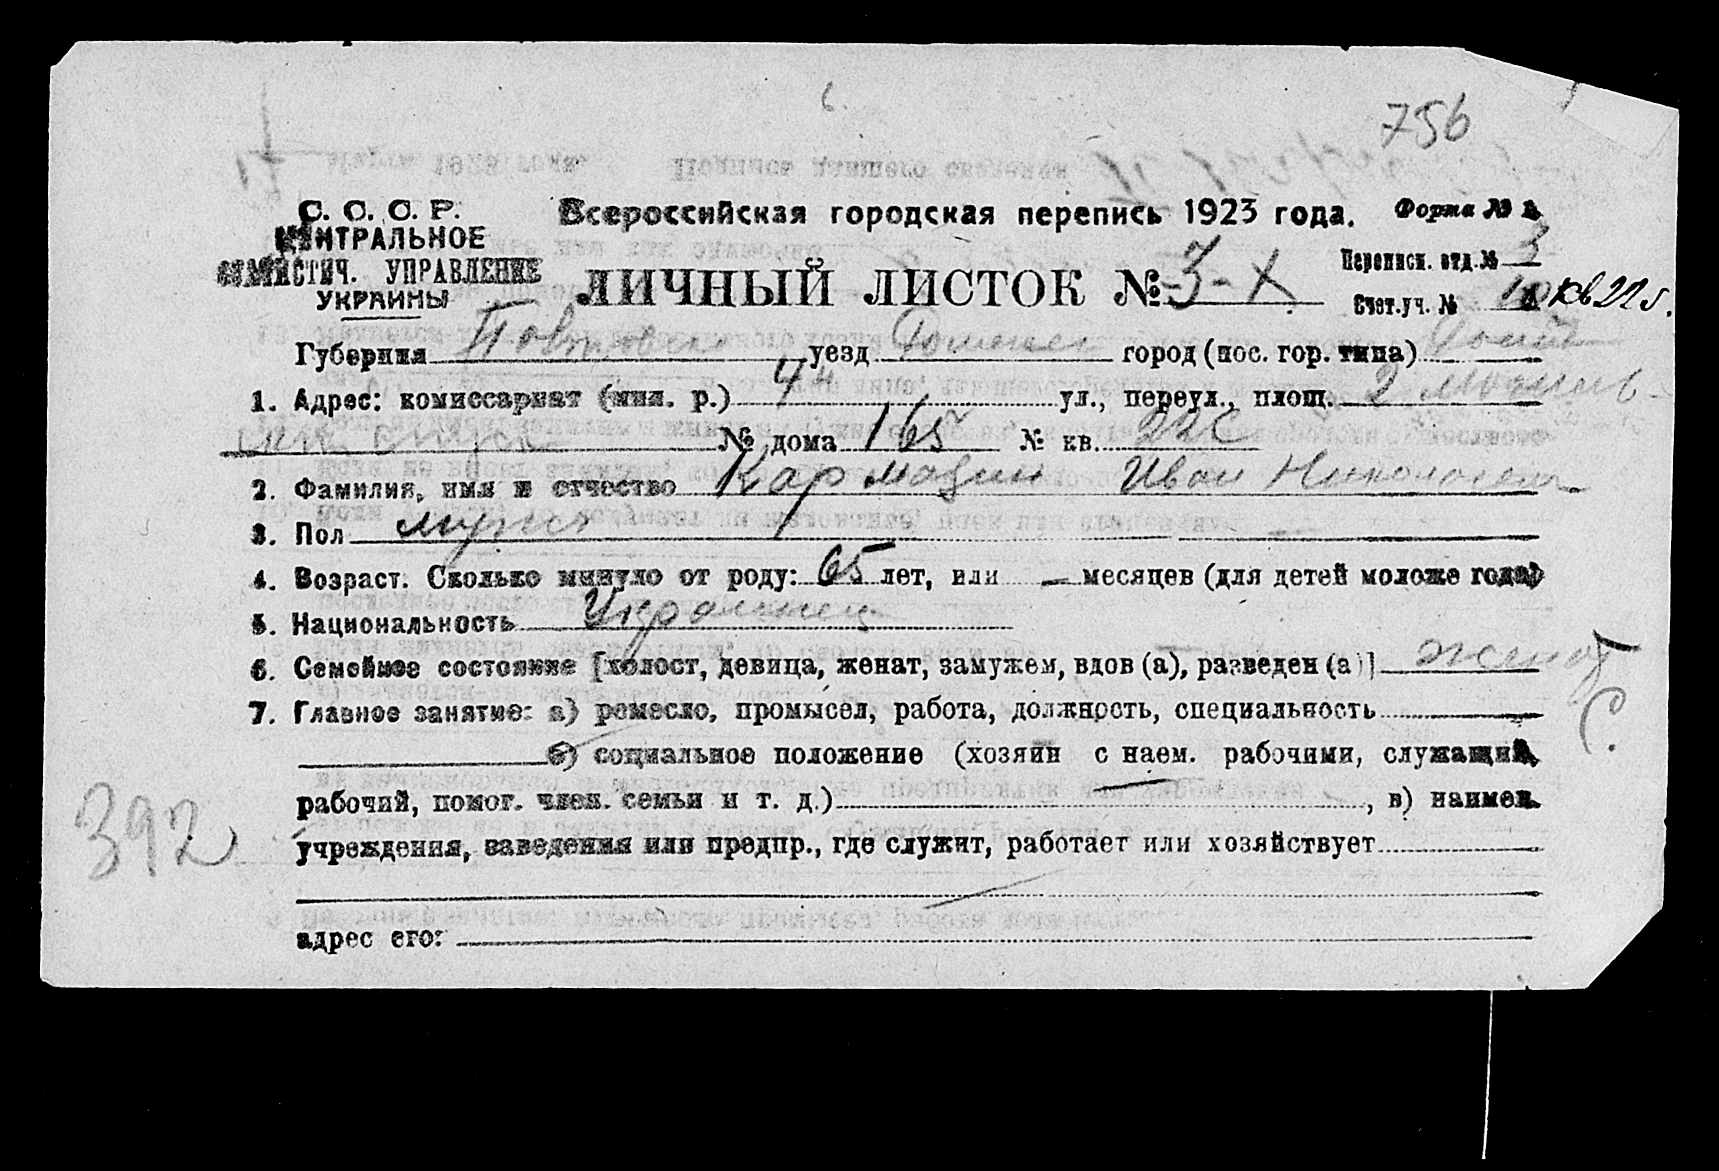 6.
756
С. С. С. Р.
ЦЕНТРАЛЬНОЕ
СТАТИСТИЧ. УПРАВЛЕНИЕ
УКРАИНЫ
Всероссийская городская перепись 1923 года.
Форма № 1
ЛИЧНЫЙ ЛИСТОК № 3-X
Переписн. отд. № 3
Счет.-уч. № 10 кв 22 б.
Губерния уезд город (пос. гор. типа)
1. Адрес: комиссариат (мил. р.) 4й ул., переул., площ. 2
№ дома 165 № кв. 22б
2. Фамилия, имя и отчество Кармазин Иван Николаевич
3. Пол мужс
4. Возраст. Сколько минуло от роду: 65 лет, или — месяцев (для детей моложе года)
5. Национальность Украинец
6. Семейное состояние [холост, девица, женат, замужем, вдов (а), разведен (а)] женат
7. Главное занятие: а) ремесло, промысел, работа, должность, специальность
С.
б) социальное положение (хозяин с наем. рабочими, служащий,
рабочий, помог. член. семьи и т. д.) , в) наимен.
392
учреждения, заведения или предпр., где служит, работает или хозяйствует
адрес его: